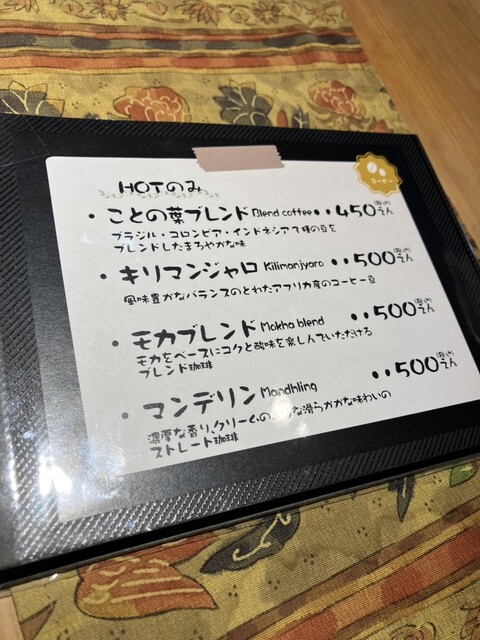 HOTのみ
コーヒー
・ことの葉ブレンド Blend coffee ・・450(税込)えん
ブラジル・コロンビア・インドネシア3種の豆を
ブレンドしたまろやかな味
・キリマンジャロ Kilimanjyaro ・・500(税込)えん
風味豊かなバランスのとれたアフリカ産のコーヒー豆
・モカブレンド Mokha blend ・・500(税込)えん
モカをベースにコクと酸味を楽しんでいただける
ブレンド珈琲
・マンデリン Mandhling ・・500(税込)えん
濃厚な香り、クリームの な滑らかな味わいの
ストレート珈琲